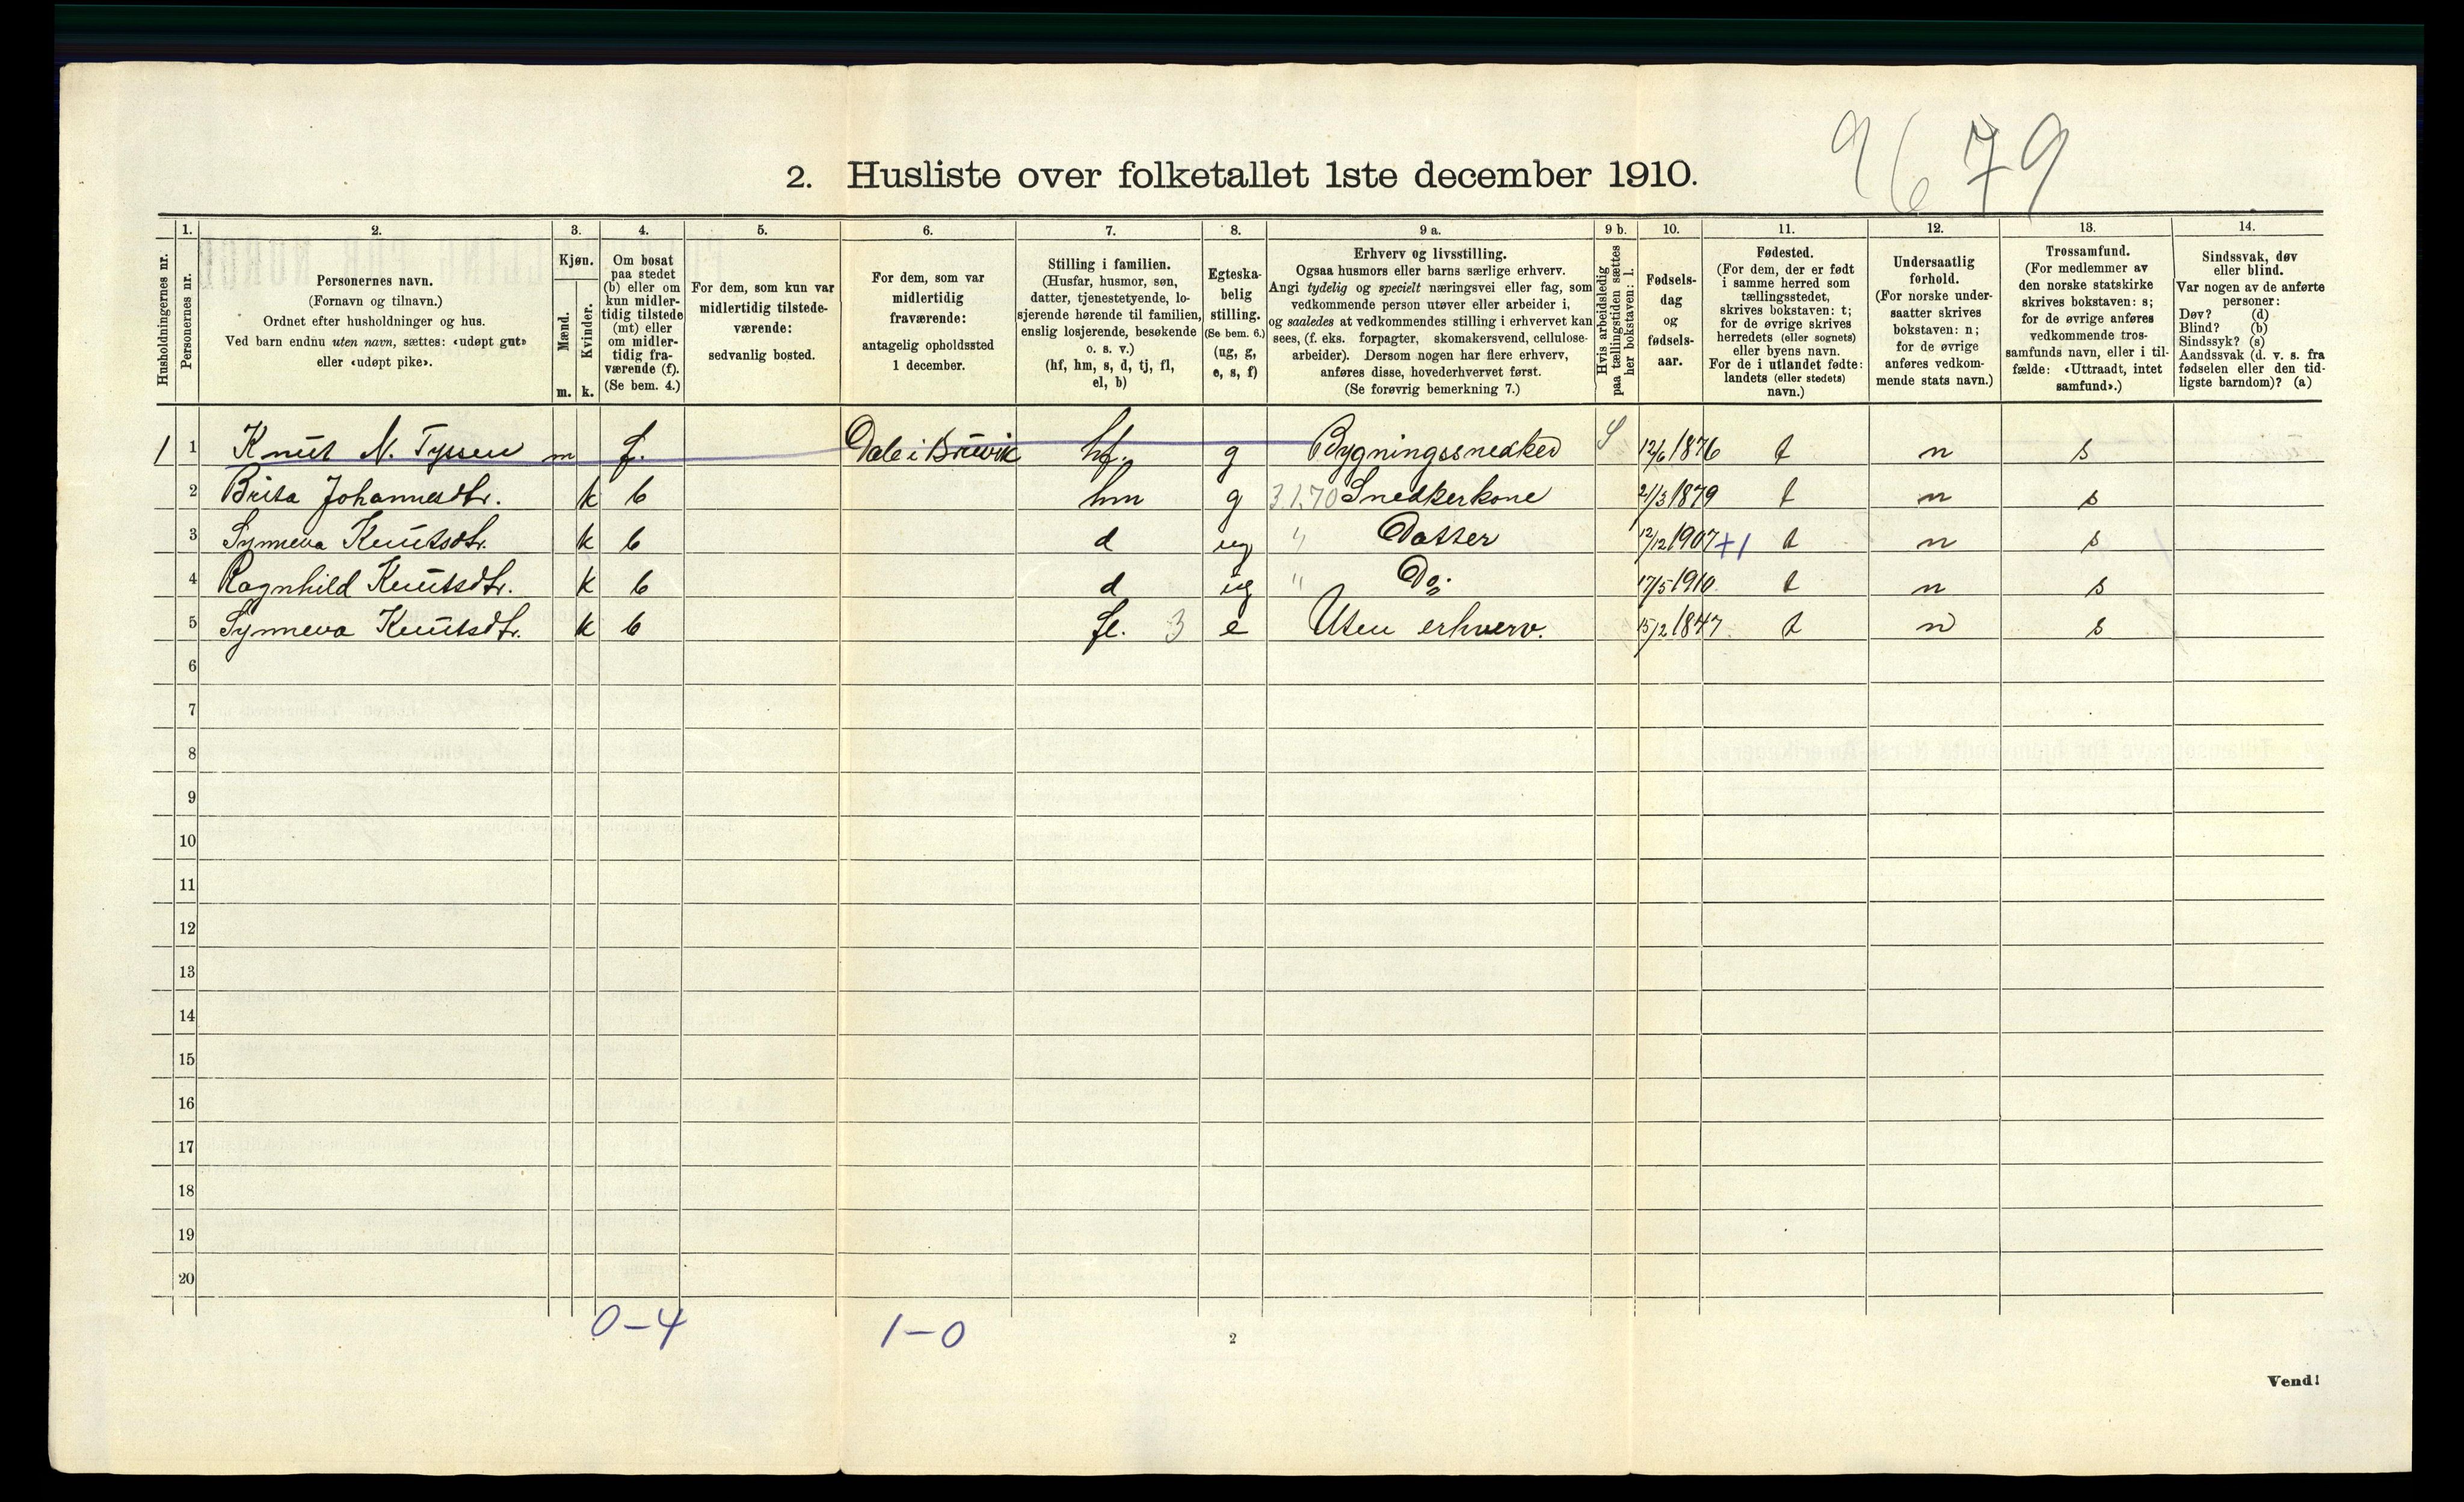 9679
2. Husliste over folketallet 1ste december 1910.
1. 2. 3. 4. 5. 6. 7. 8. 9 a. 9 b. 10. 11. 12. 13. 14.
Husholdningernes nr.
Personernes nr.
Personernes navn.
(Fornavn og tilnavn.)
Ordnet efter husholdninger og hus.
Ved barn endnu uten navn, sættes: «udøpt gut»
eller «udøpt pike».
Kjøn.
Mænd.
Kvinder.
m. k.
Om bosat
paa stedet
(b) eller om
kun midler-
tidig tilstede
(mt) eller
om midler-
tidig fra-
værende (f).
(Se bem. 4.)
For dem, som kun var
midlertidig tilstede-
værende:
sedvanlig bosted.
For dem, som var
midlertidig
fraværende:
antagelig opholdssted
1 december.
Stilling i familien.
(Husfar, husmor, søn,
datter, tjenestetyende, lo-
sjerende hørende til familien,
enslig losjerende, besøkende
o. s. v.)
(hf, hm, s, d, tj, fl,
el, b)
Egteska-
belig
stilling.
(Se bem. 6.)
(ug, g,
e, s, f)
Erhverv og livsstilling.
Ogsaa husmors eller barns særlige erhverv.
Angi tydelig og specielt næringsvei eller fag, som
vedkommende person utøver eller arbeider i,
og saaledes at vedkommendes stilling i erhvervet kan
sees, (f. eks. forpagter, skomakersvend, cellulose-
arbeider). Dersom nogen har flere erhverv,
anføres disse, hovederhvervet først.
(Se forøvrig bemerkning 7.)
Hvis arbeidsledig
paa tællingstiden sættes
her bokstaven: l.
Fødsels-
dag
og
fødsels-
aar.
Fødested.
(For dem, der er født
i samme herred som
tællingsstedet,
skrives bokstaven: t;
for de øvrige skrives
herredets (eller sognets)
eller byens navn.
For de i utlandet fødte:
landets (eller stedets)
navn.)
Undersaatlig
forhold.
(For norske under-
saatter skrives
bokstaven: n;
for de øvrige
anføres vedkom-
mende stats navn.)
Trossamfund.
(For medlemmer av
den norske statskirke
skrives bokstaven: s;
for de øvrige anføres
vedkommende tros-
samfunds navn, eller i til-
fælde: «Uttraadt, intet
samfund».)
Sindssvak, døv
eller blind.
Var nogen av de anførte
personer:
Døv? (d)
Blind? (b)
Sindssyk? (s)
Aandssvak (d. v. s. fra
fødselen eller den tid-
ligste barndom)? (a)
1 1 Knut N. Tyssen m f. Dale i Bruvik hf. g Bygningssnedker 12/6 1876 t n s
2 Brita Johannesdtr. k b hm g 3.1.70 Snedkerkone 21/3 1879 t n s
3 Synneva Knutsdtr. k b d ug " Datter 12/12 1907 +1 t n s
4 Ragnhild Knutsdtr. k b d ug " Do. 17/5 1910. t n s
5 Synneva Knutsdtr. k b fl. 3 e Uten erhverv. 15/2 1847. t n s
6
7
8
9
10
11
12
13
14
15
16
17
18
19
20
0-4 1-0
2
Vend!